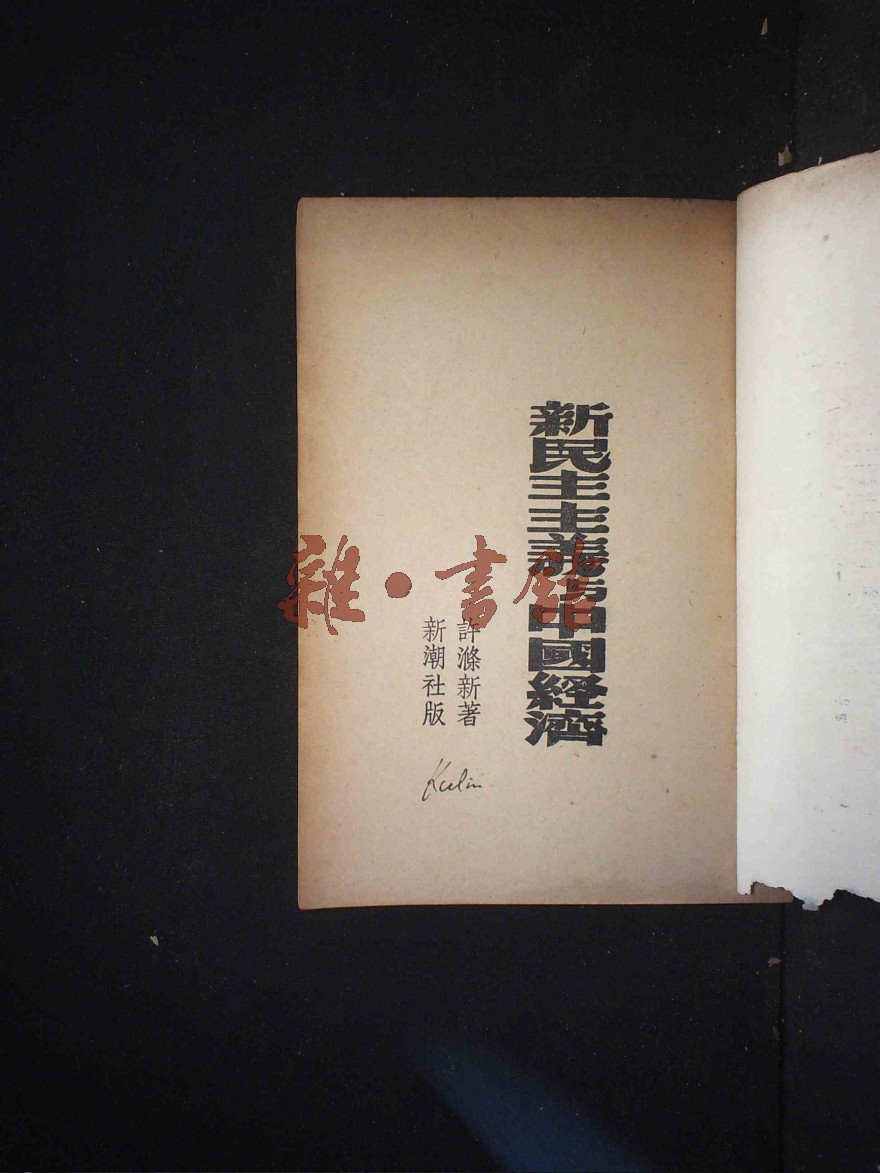 新民主主義与中國経濟
許滌新著
新潮社版
雜·書館